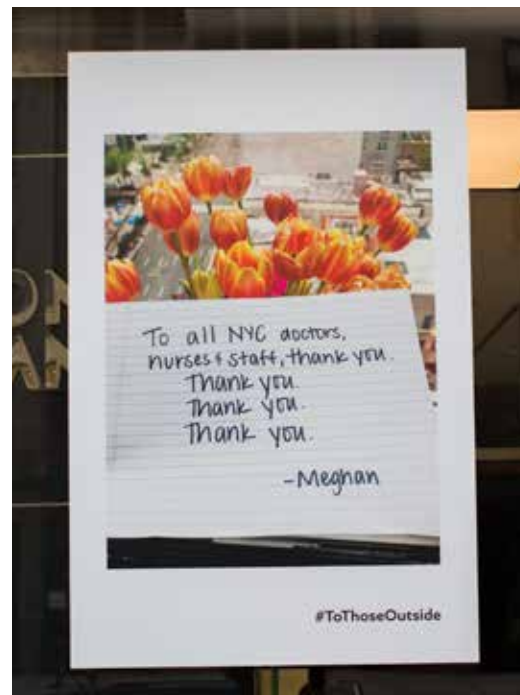 To all NYC doctors,
nurses & staff, thank you.
Thank you.
Thank you.
Thank you.
-Meghan
#ToThoseOutside